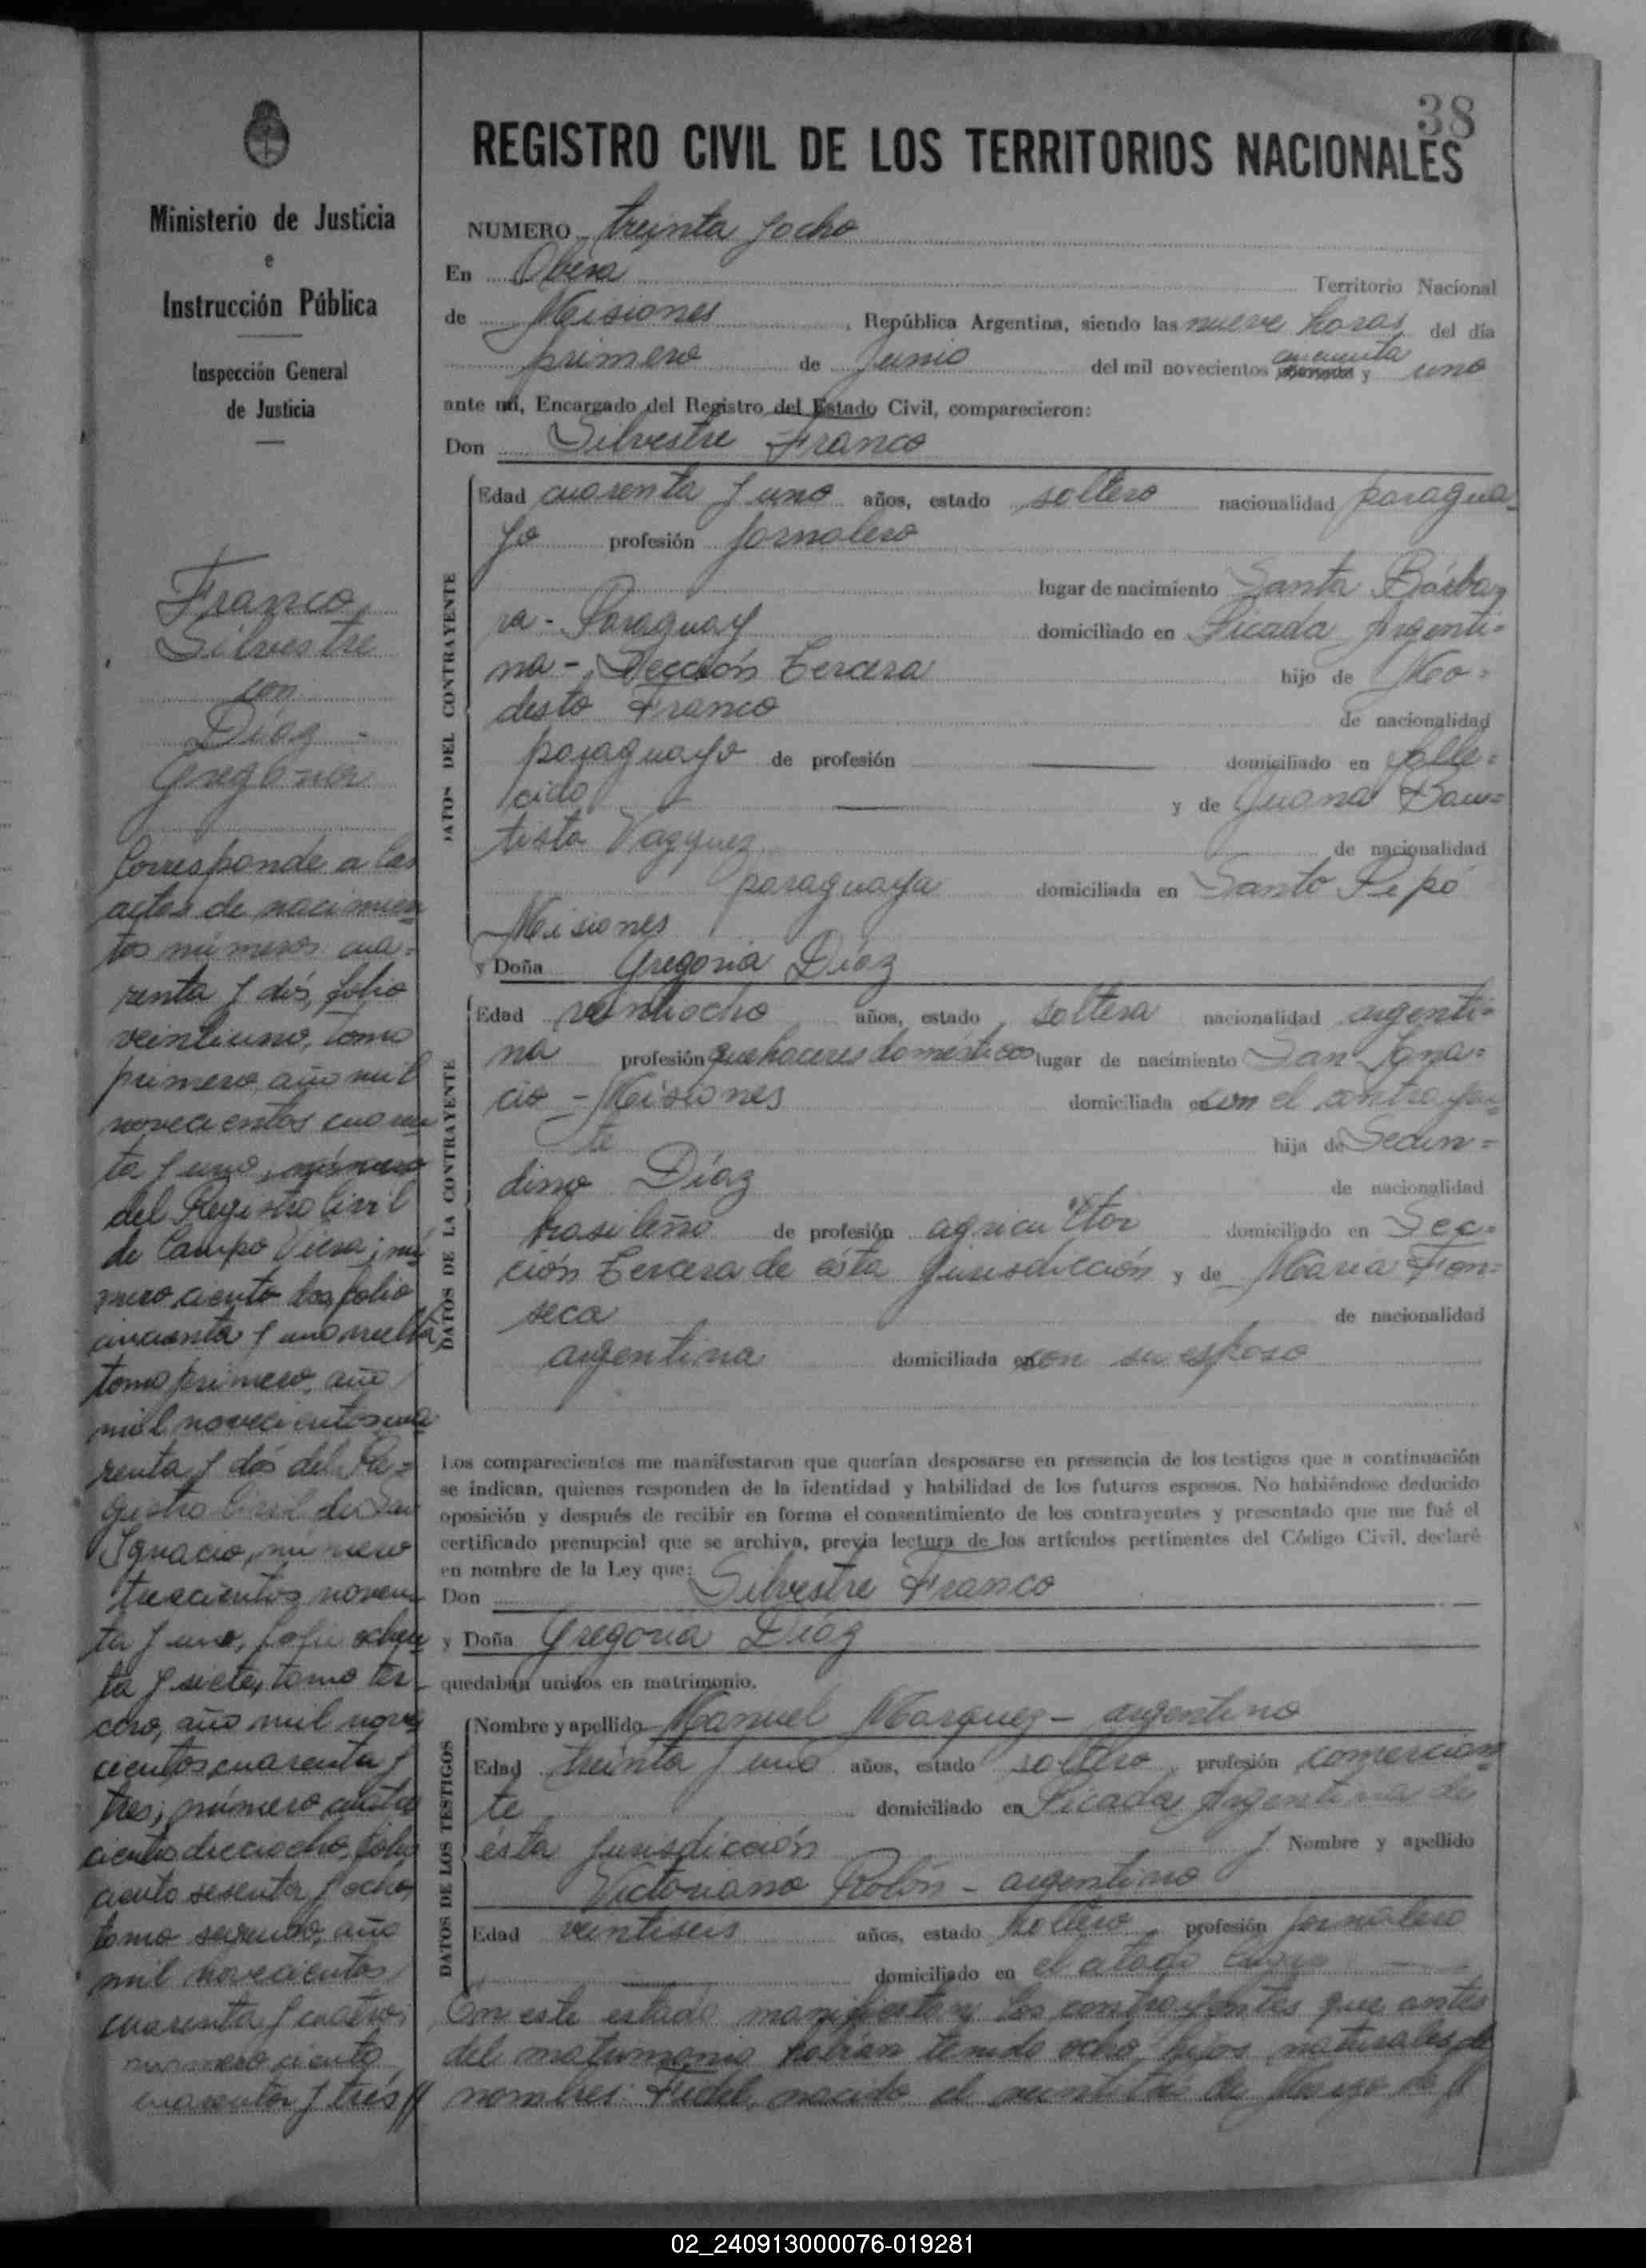 38
REGISTRO CIVIL DE LOS TERRITORIOS NACIONALES
Ministerio de Justicia
e
Instrucción Pública
Inspección General
de Justicia
Franco,
Silvestre
con
Díaz -
Gregoria
Corresponde a las
actas de nacimien
tos números cua=
renta y dós, folio
veintiuno, tomo
primero, año mil
novecientos cuaren
ta y uno,
del Registro Civil
de Campo Viera; nú
mero ciento dos, folio
cincuenta y uno vuelta,
tomo primero, año
mil novecientos cua
renta y dós del Re=
gistro Civil de San
Ignacio, número
trescientos noven
ta y uno, folio ochen
ta y siete, tomo ter
cero, año mil nove
cientos cuarenta y
tres; número cuatro
cientos dieciocho, folio
ciento sesenta y ocho,
tomo segundo, año
mil novecientos
cuarenta y cuatro;
número ciento
cuarenta y trés //
NUMERO treinta y ocho
En Oberá Territorio Nacional
de Misiones, República Argentina, siendo las nueve horas del día
primero de Junio del mil novecientos cincuenta y uno
ante mí, Encargado del Registro del Estado Civil, comparecieron:
Don Silvestre Franco
DATOS DEL CONTRAYENTE
Edad cuarenta y uno años, estado soltero nacionalidad paragua-
yo profesión jornalero
lugar de nacimiento Santa Bárba-
ra - Paraguay domiciliado en Picada Argenti-
na - Sección Tercera hijo de Mo=
desto Franco de nacionalidad
paraguayo de profesión domiciliado en falle=
cido y de Juana Bau=
tista Vazquez de nacionalidad
paraguaya domiciliada en Santo Pipó
Misiones
y Doña Gregoria Díaz
DATOS DE LA CONTRAYENTE
Edad veintiocho años, estado soltera nacionalidad argenti-
na profesión quehaceres domésticos lugar de nacimiento San Igna=
cio - Misiones domiciliada en con el contrayen-
te hija de Secun=
dino Díaz de nacionalidad
brasileño de profesión agricultor domiciliado en Sec=
ción Tercera de ésta Jurisdicción y de María Fon=
seca de nacionalidad
argentina domiciliada en con su esposo
Los comparecientes me manifestaron que querían desposarse en presencia de los testigos que a continuación
se indican, quienes responden de la identidad y habilidad de los futuros esposos. No habiéndose deducido
oposición y después de recibir en forma el consentimiento de los contrayentes y presentado que me fué el
certificado prenupcial que se archiva, previa lectura de los artículos pertinentes del Código Civil, declaré
en nombre de la Ley que:
Don Silvestre Franco
y Doña Gregoria Díaz
quedaban unidos en matrimonio.
DATOS DE LOS TESTIGOS
Nombre y apellido Manuel Marquez - argentino
Edad treinta y uno años, estado soltero, profesión comercian
te domiciliado en Picada Argentina de
ésta Jurisdicción y Nombre y apellido
Victoriano Rolón - argentino
Edad veintiseis años, estado soltero, profesión jornalero
domiciliado en el
En este estado manifiestan los contrayentes que antes
del matrimonio habían tenido ocho hijos naturales de
nombres: Fidel, nacido el veintitrés de Marzo de //
02_240913000076-019281